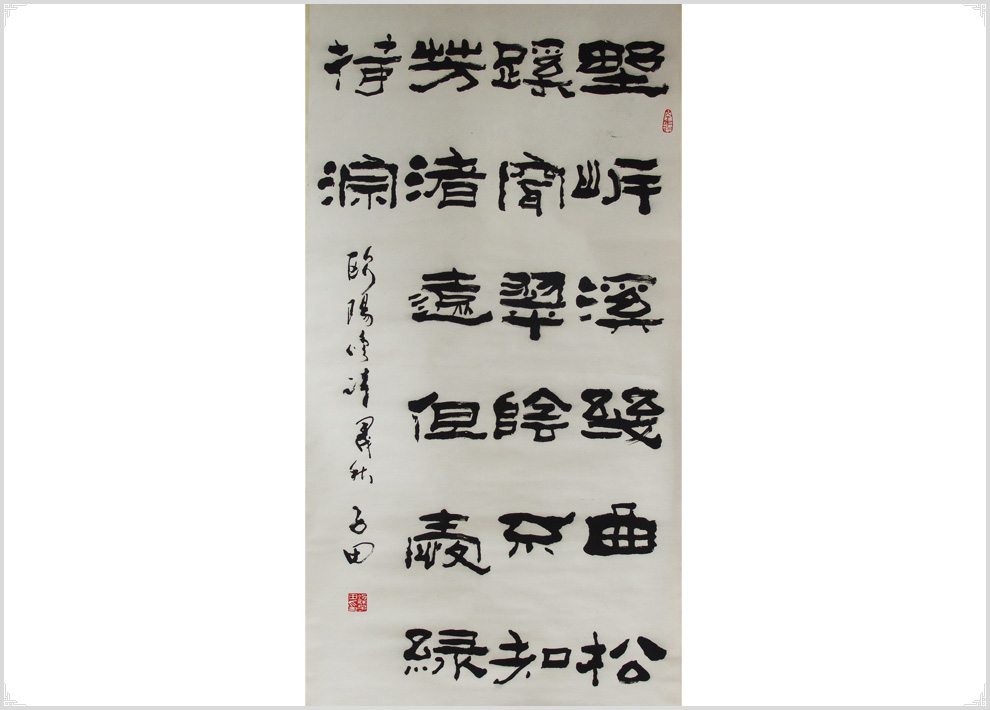 野岸溪幾曲松
蹊穿翠陰不知
芳渚遠但愛綠
荷深
歐陽脩詩 秋 田